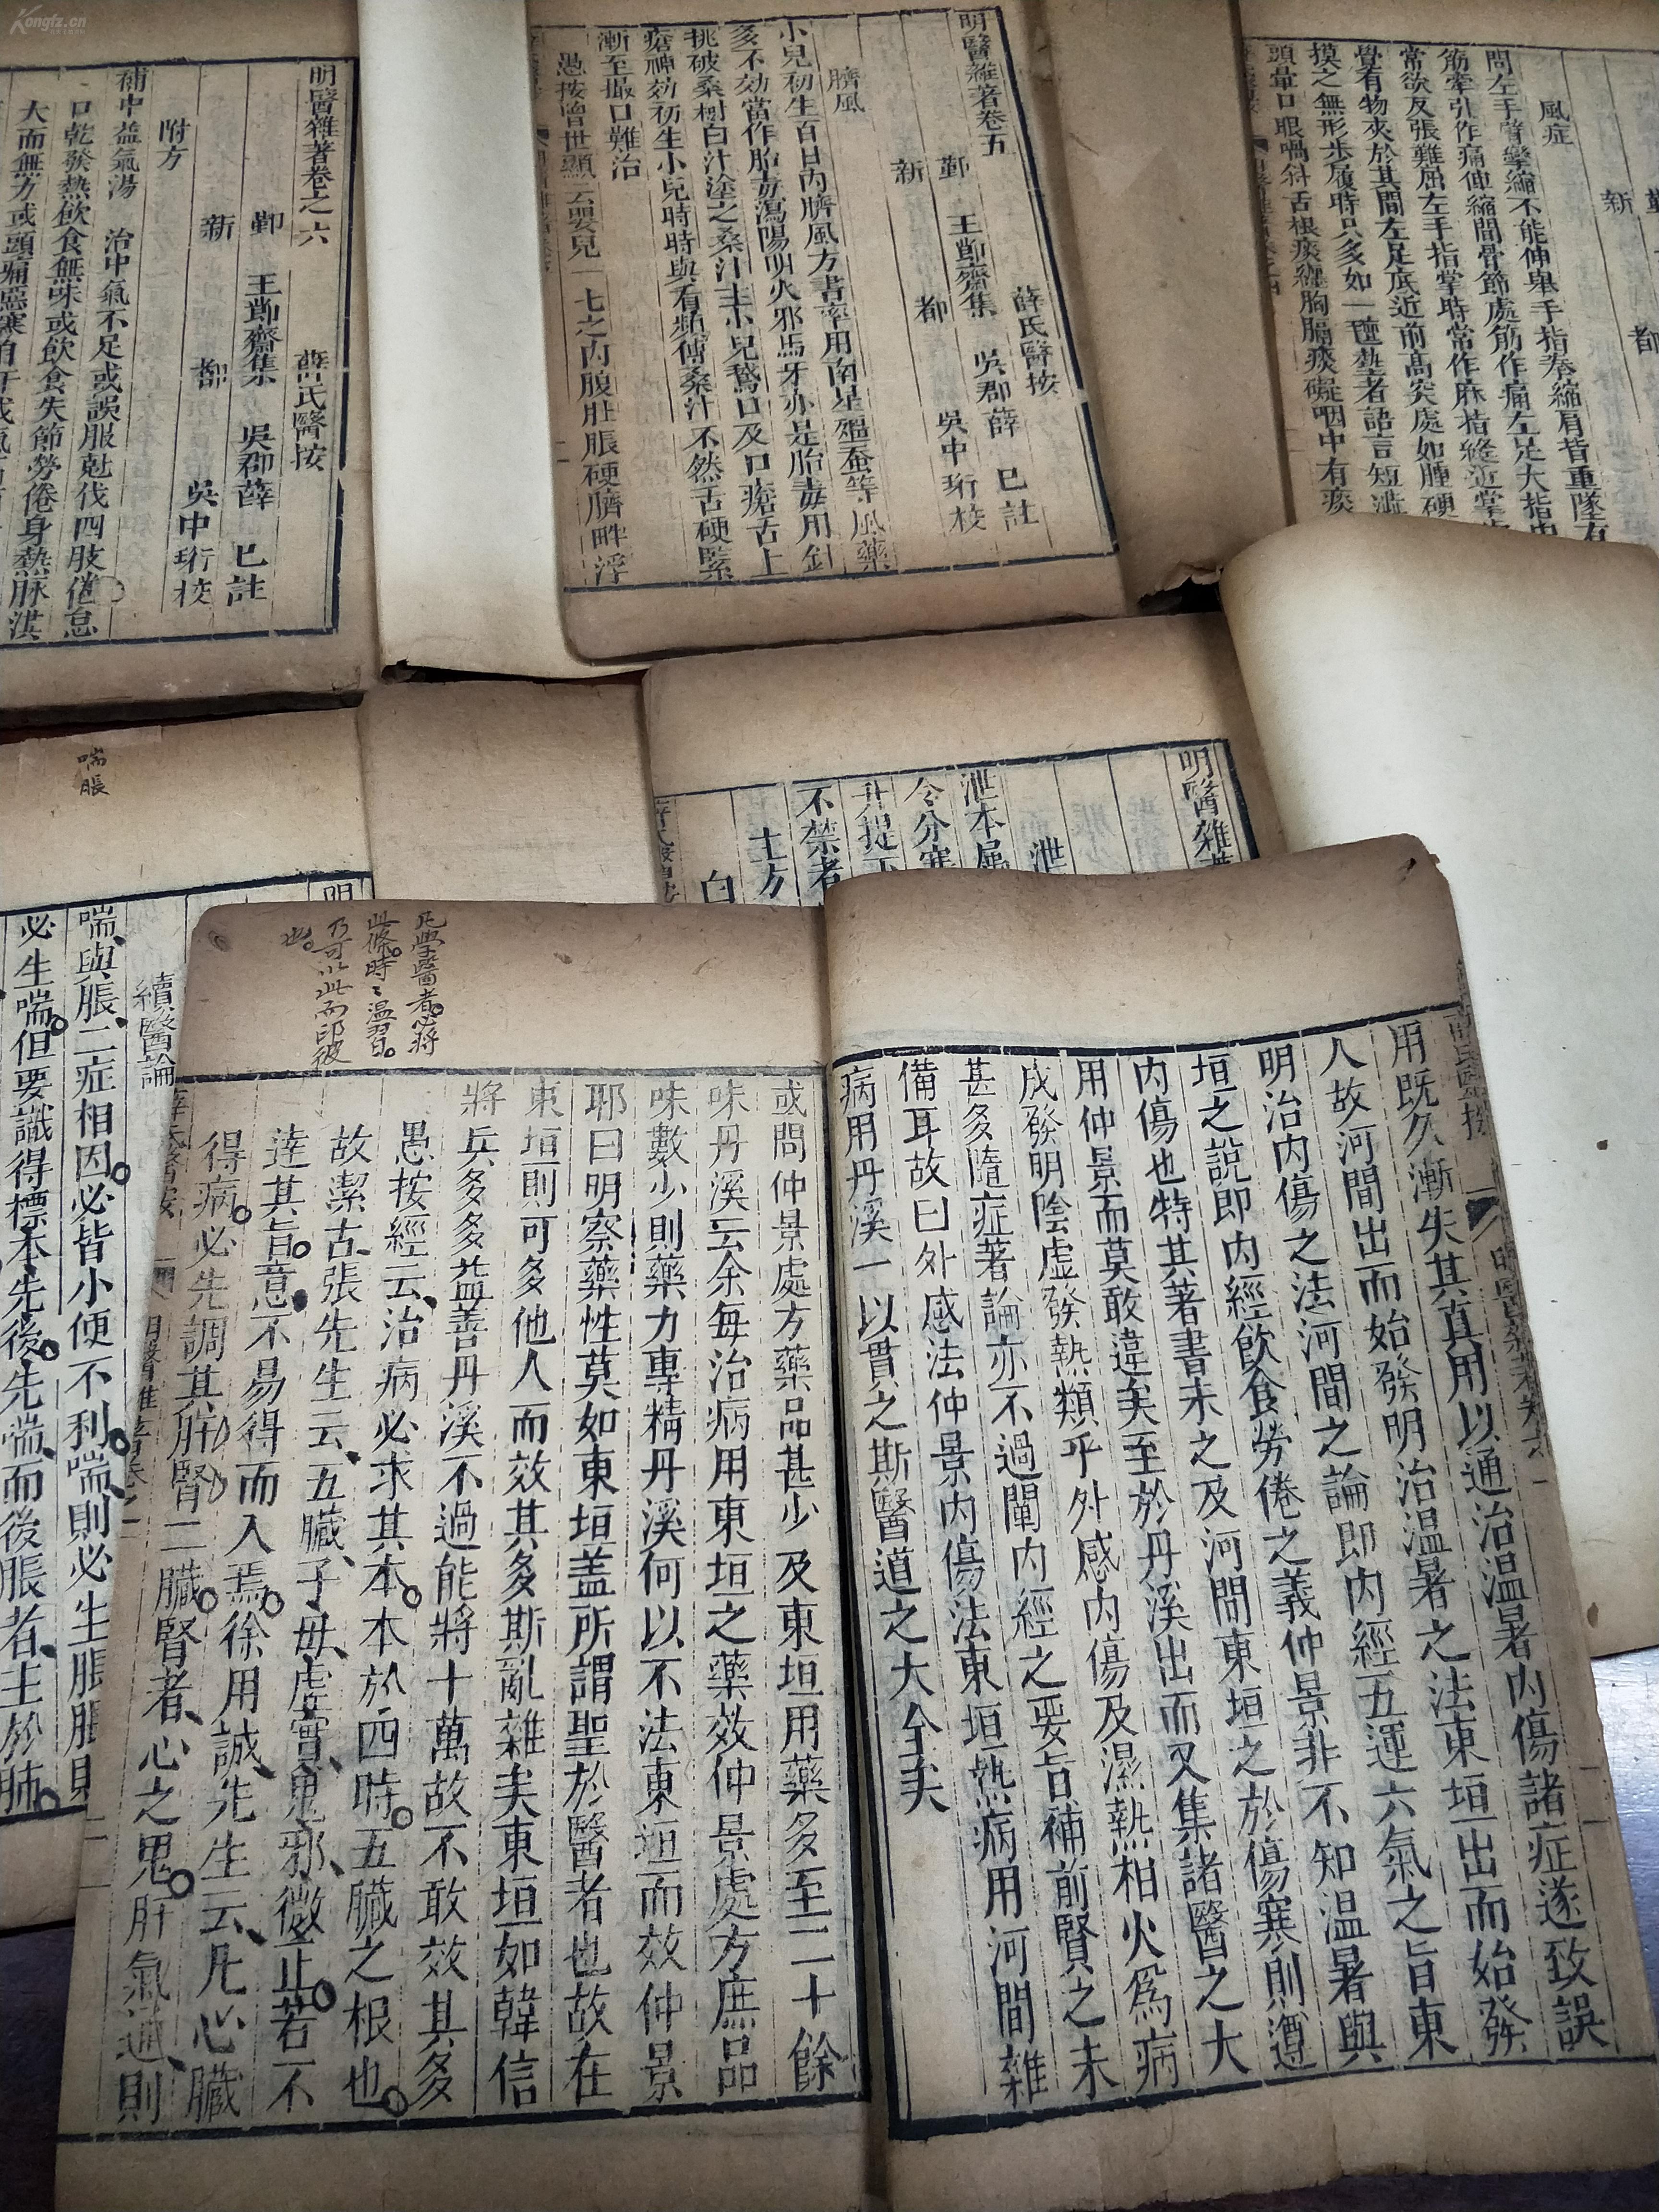 Kongfz.cn
明醫雜著卷之六
薛氏醫按
鄞 王節齋集 吳郡薛 已註
新 都 吳中珩校
附方
補中益氣湯 治中氣不足或誤服尅伐四肢倦怠
口乾發熱飲食無味或飲食失節勞倦身熱脉洪
大而無力或頭痛惡寒自汗
明醫雜著卷五
薛氏醫按
鄞 王節齋集 吳郡薛 已註
新 都 吳中珩校
臍風
小兒初生百日內臍風方書率用南星殭蚕等風藥
多不効當作胎毒瀉陽明火邪馬牙亦是胎毒用針
挑破桑樹白汁塗之桑汁主小兒鵞口及口瘡舌上
瘡神効初生小兒時時與看頻傅桑汁不然舌硬緊
漸至撮口難治
愚按曾世顯云嬰兒一七之內腹肚脹硬臍畔浮
新 都
風症
問左手臂攣縮不能伸舉手指拳縮肩背重墜有
筋牽引作痛伸縮間骨節處筋作痛左足大指
常欲反張難屈左手指掌時常作麻指縫近掌
覺有物夾於其間左足底近前高突處如腫硬
摸之無形步履時只多如一
頭暈口眼喎斜舌根痰纏胸膈痰礙咽中有痰
喘脹
明
續醫論
喘與脹二症相因必皆小便不利喘則必生脹脹則
必生喘但要識得標本先後先喘而後脹者主於肺
明醫雜
泄
泄本屬
令分寒
升提下
不禁者
土方
白
用既久漸失其真用以通治温暑內傷諸症遂致誤
人故河間出而始發明治温暑之法東垣出而始發
明治內傷之法河間之論即內經五運六氣之旨東
垣之說即內經飲食勞倦之義仲景非不知温暑與
內傷也特其著書未之及河間東垣之於傷寒則遵
用仲景而莫敢違矣至於丹溪出而又集諸醫之大
成發明陰虛發熱類乎外感內傷及濕熱相火為病
甚多隨症著論亦不過闡內經之要旨補前賢之未
備耳故曰外感法仲景內傷法東垣熱病用河間雜
病用丹溪一以貫之斯醫道之大全矣
凡學醫者必將
此條時時温習
乃可以此而印彼
也
或問仲景處方藥品甚少及東垣用藥多至二十餘
味丹溪云余每治病用東垣之藥效仲景處方庶品
味數少則藥力專精丹溪何以不法東垣而效仲景
耶曰明察藥性莫如東垣盖所謂聖於醫者也故在
東垣則可多他人而效其多斯亂雜矣東垣如韓信
將兵多多益善丹溪不過能將十萬故不敢效其多
愚按經云治病必求其本本於四時五臟之根也
故潔古張先生云五臟子母虛實鬼邪微正若不
達其旨意不易得而入焉徐用誠先生云凡心臟
得病必先調其肝腎二臟腎者心之鬼肝氣通則